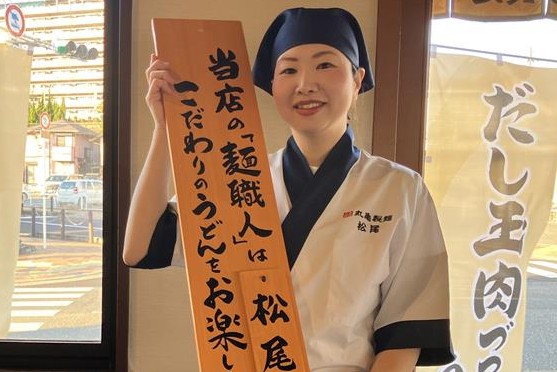 当店の「麺職人」は
松尾
こだわりのうどんをお楽し
丸亀製麺
松尾
だし玉肉づ